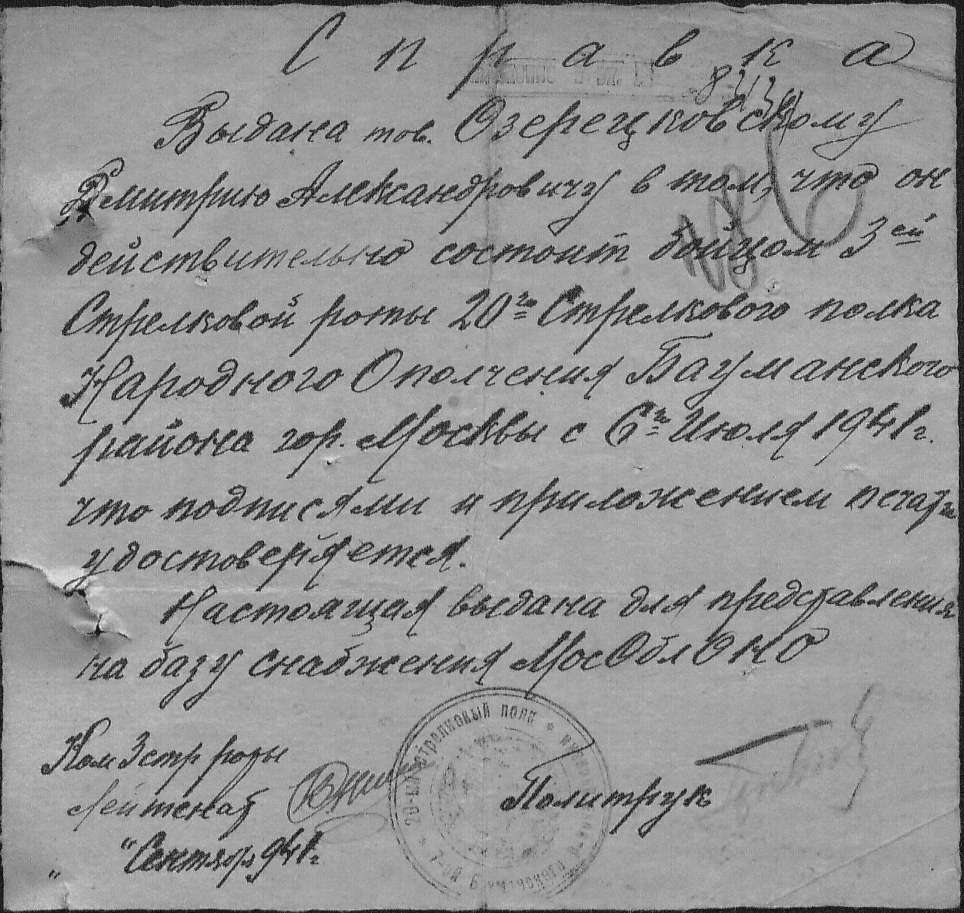 Справка
Выдана тов. Озерецковскому
Дмитрию Александровичу в том, что он
действительно состоит бойцом 3ей
Стрелковой роты 20го Стрелкового полка
Народного Ополчения Бауманского
района гор. Москвы с 6го Июля 1941г.
что подписями и приложением печати
удостоверяется.
Настоящая выдана для представления
на базу снабжения МосОблОНО
Ком 3 стр роты
Лейтенат
Политрук
" " Сентября 941г.
20-ый стрелковый полк